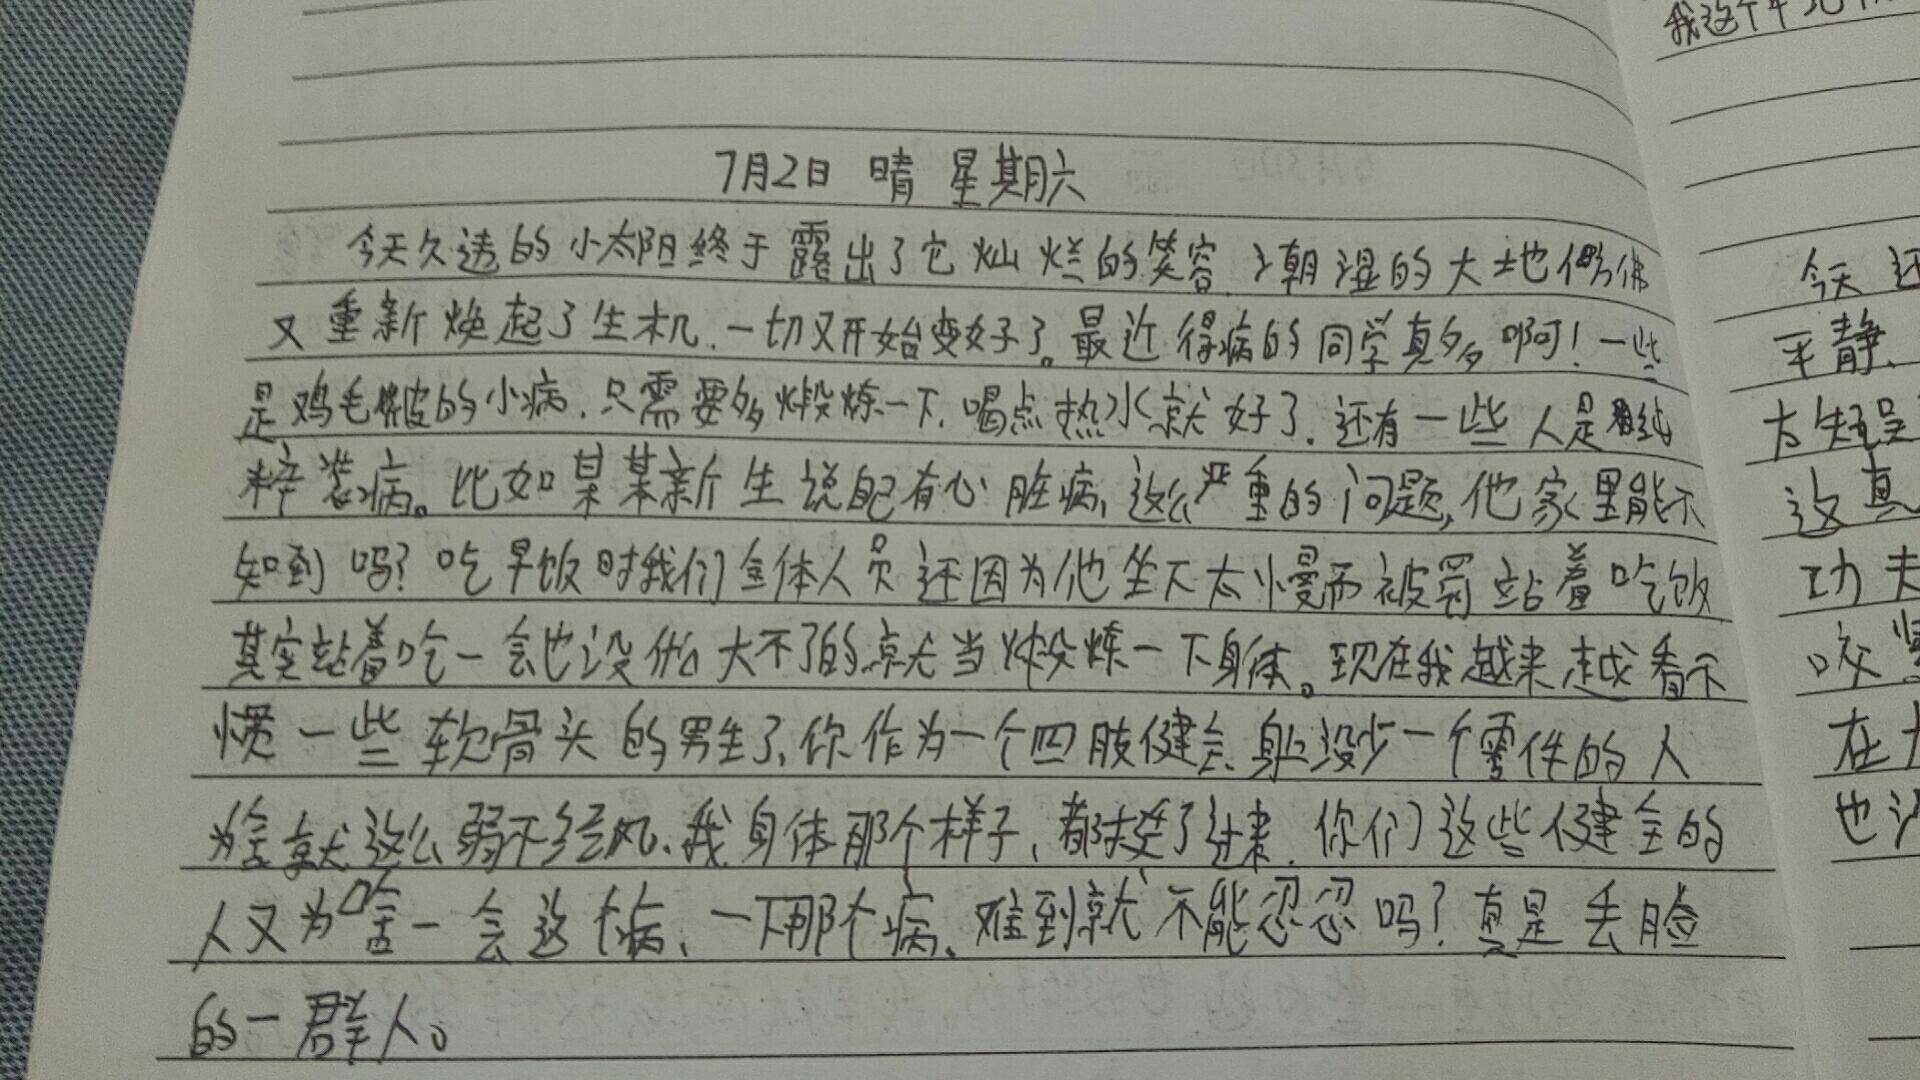 7月2日 晴 星期六
今天久违的小太阳终于露出了它灿烂的笑容、潮湿的大地仿佛
又重新焕起了生机、一切又开始变好了。最近得病的同学真多啊!一些
是鸡毛蒜皮的小病、只需要多煅炼一下、喝点热水就好了、还有一些人是纯
粹装病。比如某某新生说自己有心脏病、这么严重的问题,他家里能不
知到吗?吃早饭时我们全体人员还因为他坐下太慢而被罚站着吃饭
其实站着吃一会也没什么大不了的就当煅炼一下身体。现在我越来越看不
惯一些软骨头的男生了、你作为一个四肢健全、身上没少一个零件的人
为啥就这么弱不经风、我身体那个样子、都挺了过来、你们这些健全的
人又为啥一会这个病、一下那个病、难到就不能忍忍吗?真是丢脸
的一群人。
我这个年
今天还
平静、
这真
功夫
在
也没